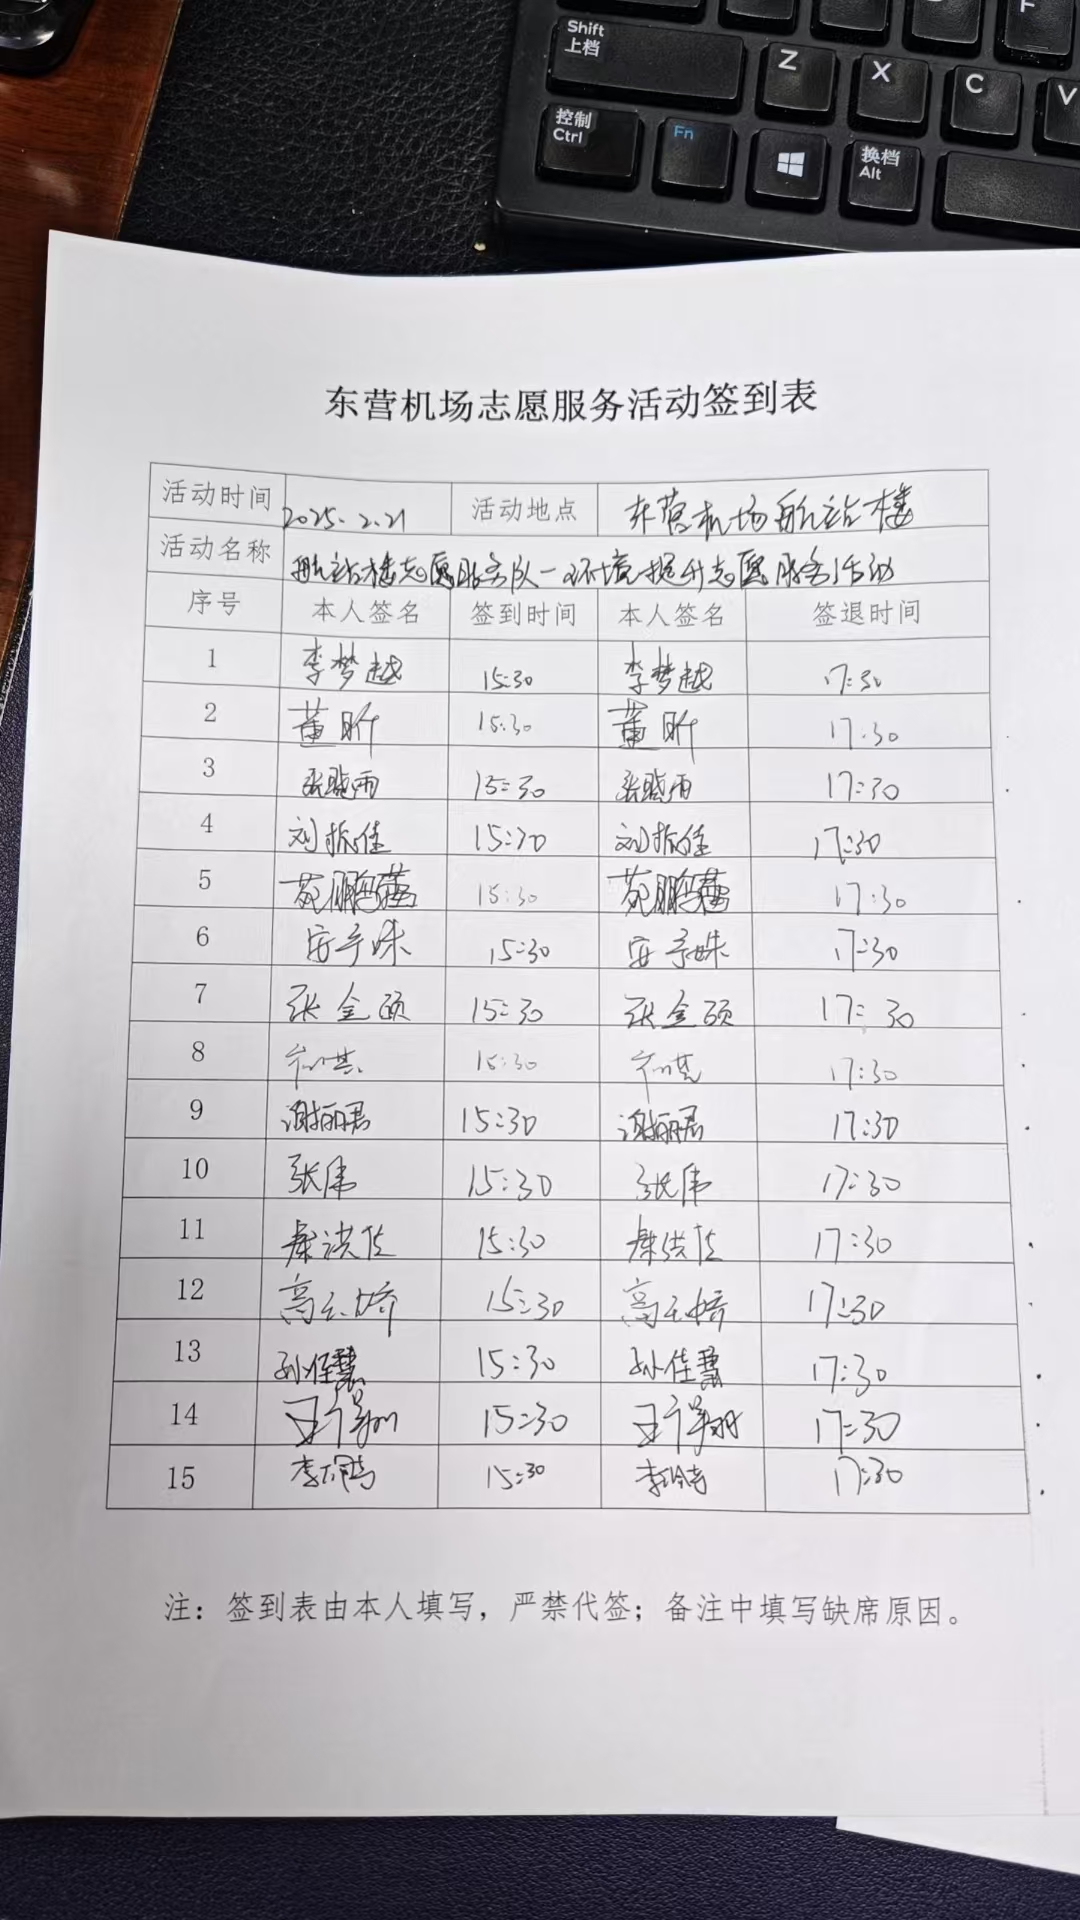 Shift
上档
Z
X
C
V
F
控制
Ctrl
Fn
换档
Alt
东营机场志愿服务活动签到表
活动时间 2025.2.21 活动地点 东营机场航站楼
活动名称 航站楼志愿服务队—环境提升志愿服务活动
序号 本人签名 签到时间 本人签名 签退时间
1 李梦越 15:30 李梦越 17:30
2 董昕 15:30 董昕 17:30
3 张晓雨 15:30 张晓雨 17:30
4 刘振佳 15:30 刘振佳 17:30
5 苑鹏 15:30 苑鹏 17:30
6 安子姝 15:30 安子姝 17:30
7 张金硕 15:30 张金硕 17:30
8 15:30 17:30
9 谢丽君 15:30 谢丽君 17:30
10 张伟 15:30 张伟 17:30
11 秦洪佐 15:30 秦洪佐 17:30
12 高云娇 15:30 高云娇 17:30
13 孙佳慧 15:30 孙佳慧 17:30
14 15:30 17:30
15 15:30 17:30
注：签到表由本人填写，严禁代签；备注中填写缺席原因。